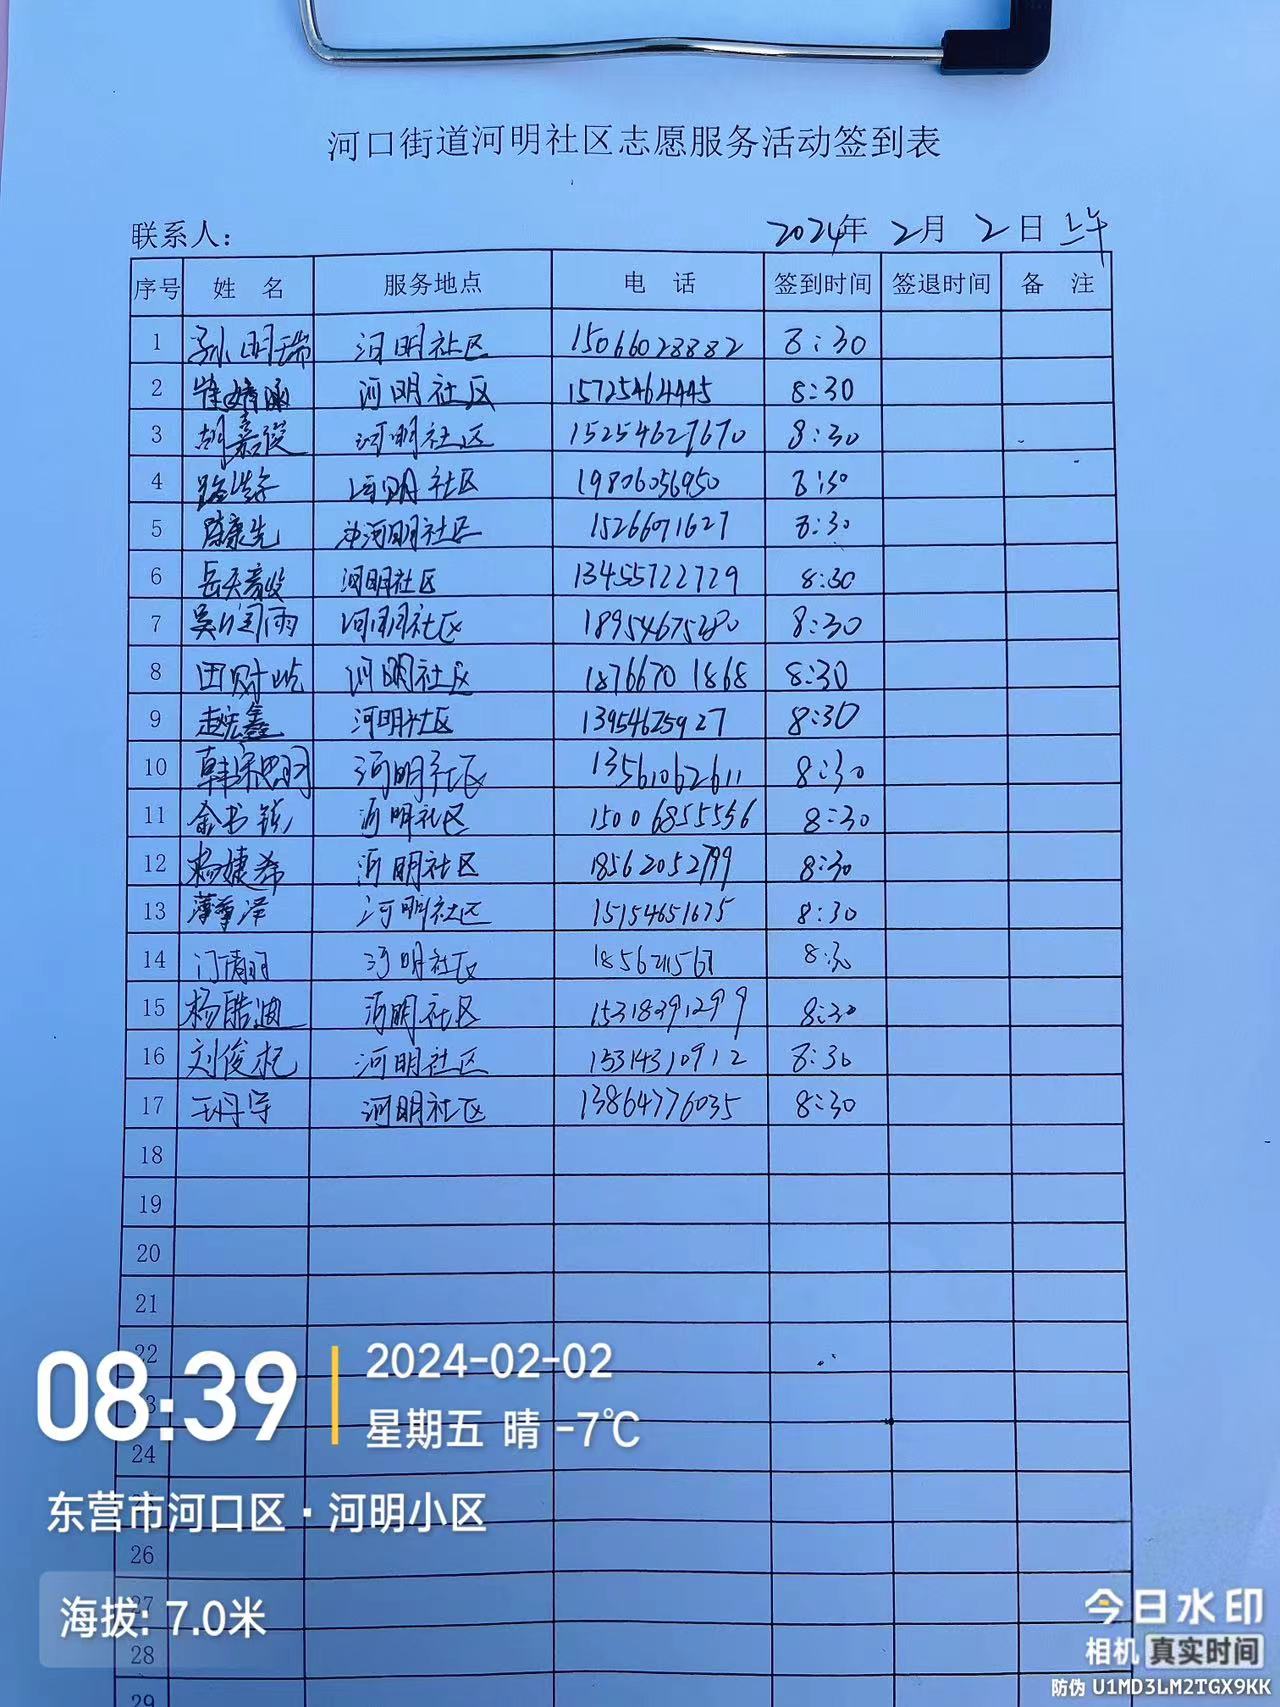 河口街道河明社区志愿服务活动签到表
联系人: 2024年 2月 2日 上午
序号 姓 名 服务地点 电 话 签到时间 签退时间 备 注
1 孙明瑞 河明社区 15066028882 8:30
2 河明社区 15725464445 8:30
3 胡嘉俊 河明社区 15254627670 8:30
4 河明社区 19806056950 8:30
5 陈康先 河明社区 15266071627 8:30
6 河明社区 13455722729 8:30
7 吴闰雨 河明社区 18954675280 8:30
8 田财屹 河明社区 18766701868 8:30
9 赵宏鑫 河明社区 13954625927 8:30
10 河明社区 13561062611 8:30
11 河明社区 15006855556 8:30
12 杨婕希 河明社区 18562052799 8:30
13 河明社区 15154651675 8:30
14 河明社区 8:30
15 杨皓迪 河明社区 15318391299 8:30
16 刘俊杞 河明社区 15314310912 8:30
17 河明社区 13864776035 8:30
18
19
20
21
22
24
26
28
29
08:39
2024-02-02
星期五 晴 -7℃
东营市河口区·河明小区
海拔: 7.0米
今日水印
相机 真实时间
防伪 U1MD3LM2TGX9KK